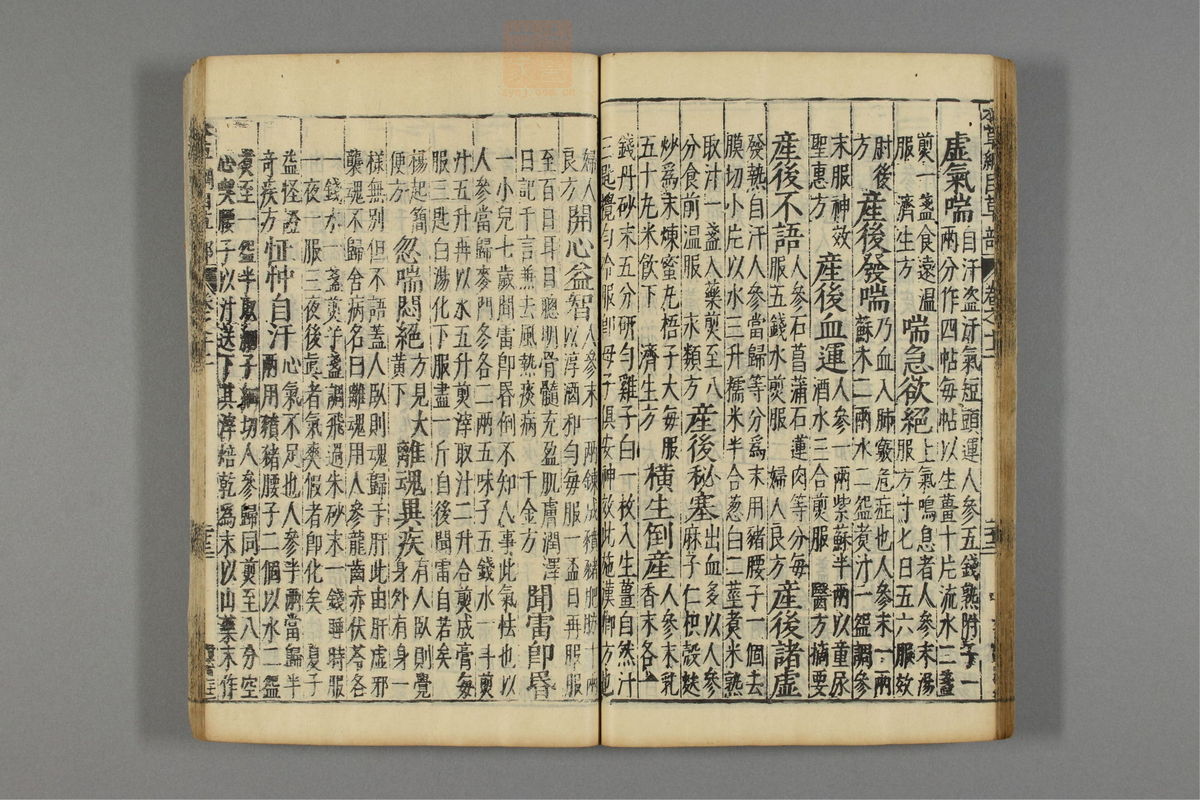 本草綱目草部 卷之十二
虛氣喘自汗盗汗氣短頭運人參五錢熟附子一
兩分作四帖每帖以生薑十片流水二盞
煎一盞食遠温
服 濟生方 喘急欲絕上氣鳴息者人參末湯
服方寸七日五六服效
肘後方 產後發喘乃血入肺竅危症也人參末一兩
蘇木二兩水二盌煮汁一盌調參
末服神效
聖惠方 產後血運人參一兩紫蘇半兩以童尿
酒水三合煎服 醫方摘要
產後不語人參石菖蒲石蓮肉等分每
服五錢水煎服 婦人良方 產後諸虛
發熱自汗人參當歸等分爲末用豬腰子一個去
膜切小片以水三升糯米半合葱白二莖煮米熟
取汁一盞入藥煎至八
分食前温服 類方 產後秘塞出血多以人參
麻子仁枳殼麩
炒爲末煉蜜丸梧子大每服
五十九米飲下 濟生方 橫生倒産人參末乳
香末各一
錢丹砂末五分研勻雞子白一枚入生薑自然汁
三匙攪勻冷服即母子俱安神效此施漢卿方也
婦人
良方 開心益智人參末一兩鍊成豶豬肥肪十兩
以淳酒和勻每服一盃日再服服
至百日耳目聰明骨髓充盈肌膚潤澤
日記千言兼去風熱痰病 千金方 聞雷即昏
一小兒七歲聞雷即昏倒不知人事此氣怯也以
人參當歸麥門冬各二兩五味子五錢水一斗煎
汁五升再以水五升煎滓取汁二升合煎成膏每
服三匙白湯化下服盡一斤自後聞雷自若矣
楊起簡
便方 忽喘悶絕方見大
黃下 離魂異疾有人臥則覺
身外有身一
樣無別但不語蓋人臥則魂歸于肝此由肝虛邪
襲魂不歸舍病名曰離魂用人參龍齒赤伏苓各
一錢水一盞煎半盞調飛過朱砂末一錢睡時服
一夜一服三夜後眞者氣爽假者即化矣 夏子
益怪證
奇疾方 怔忡自汗心氣不足也人參半兩當歸半
兩用豶豬腰子二個以水二盌
煑至一盌半取腰子細切人參歸同煎至八分空
心喫腰子以汁送下其滓焙乾爲末以山藥末作